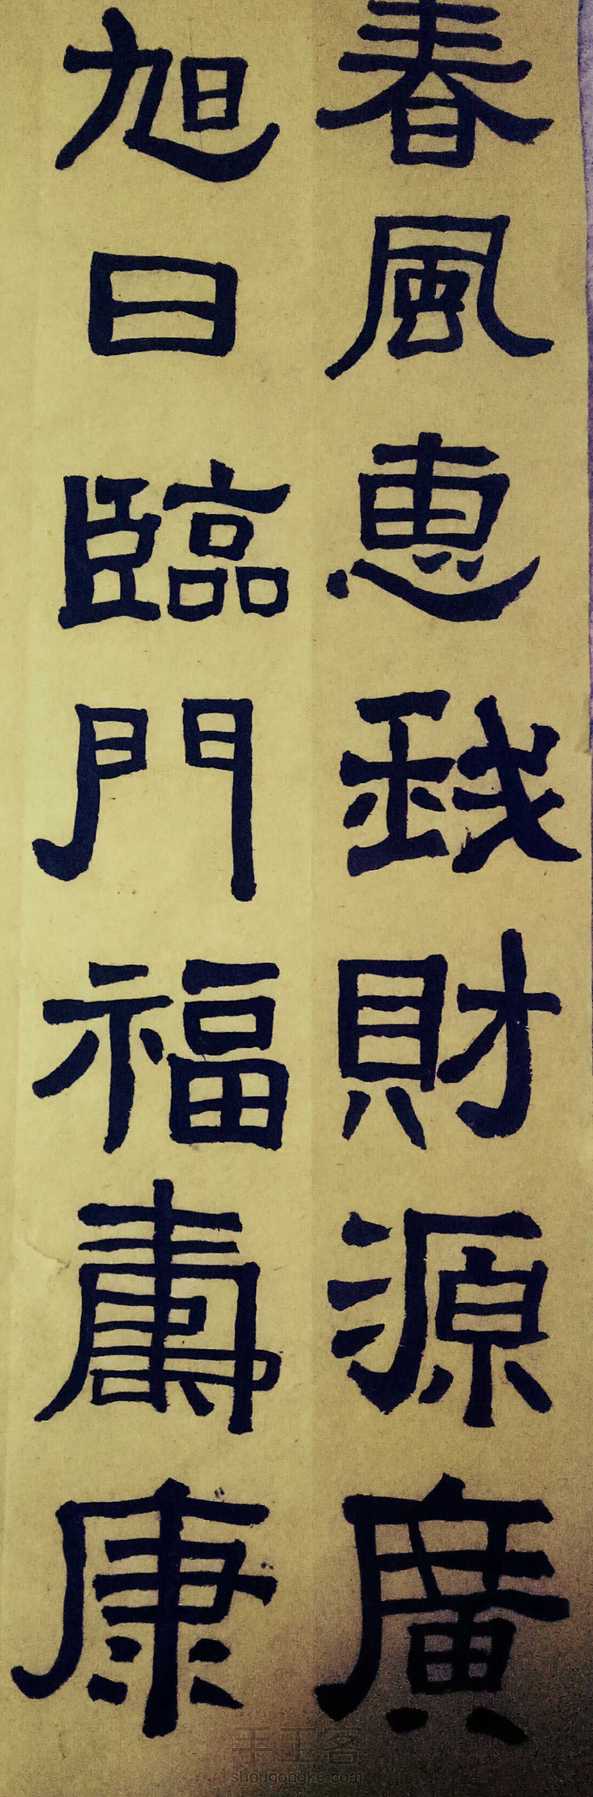 春風惠我財源廣
旭日臨門福壽康
手工客
shougongke.com